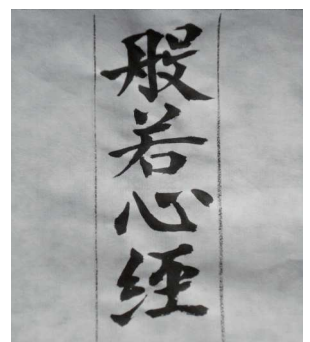 般若心経